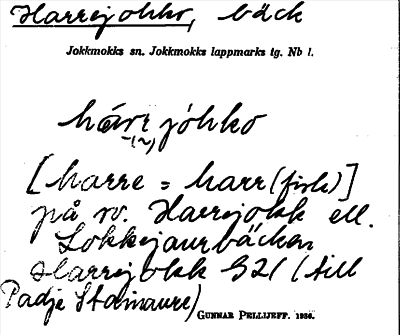 Harrejohko, bäck
Jokkmokks sn. Jokkmokks lappmarks tg. Nb l.
hárrejóhko
[harre = harr (fisk)]
på sv. Harrejokk ell.
Lokkejaurbäcken
Harrejokk S21 (till
Padje Stainaure)
GUNNAR PELLIJEFF. 1950.